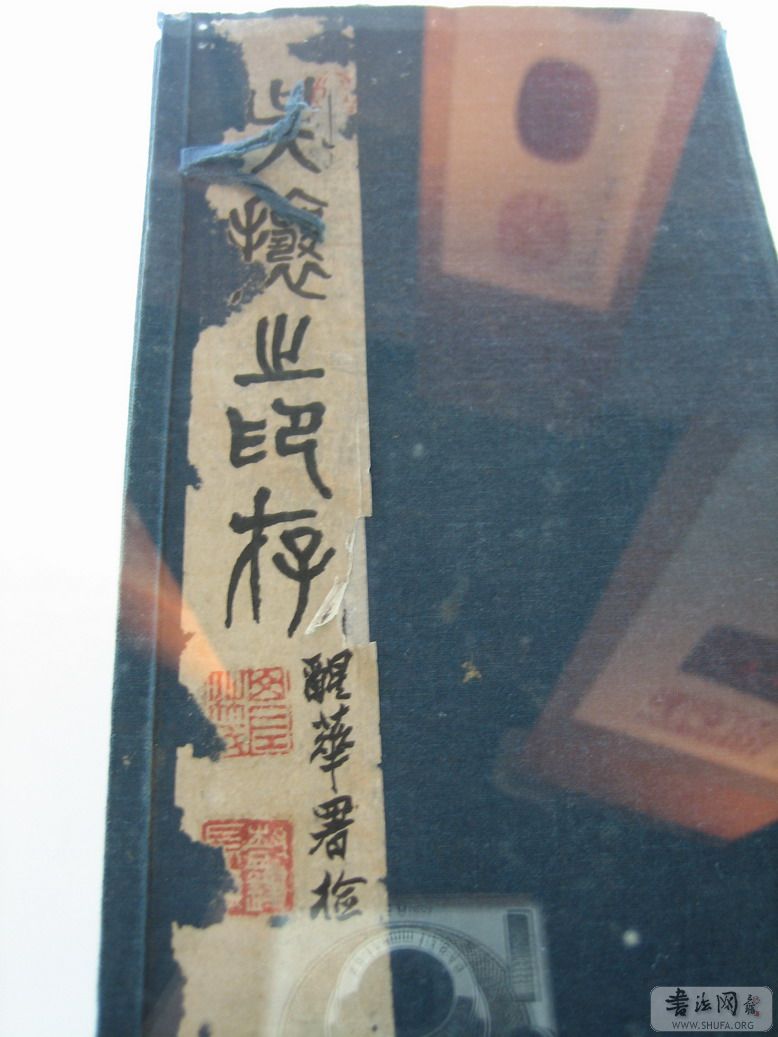 吳攘之印存
醒華署检
書法网
WWW.SHUFA.ORG